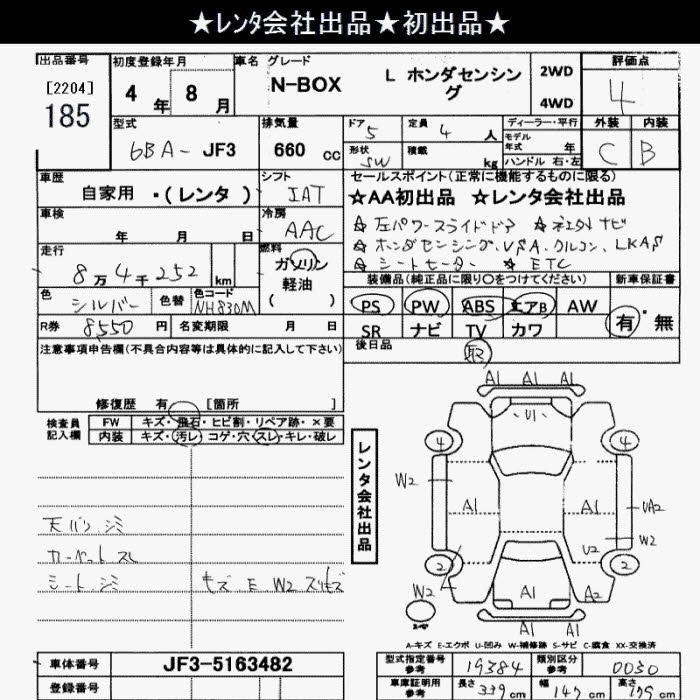 ★レンタ会社出品★初出品★
出品番号 初度登録年月 車名 グレード 評価点
[2204]
185
4年 8月 N-BOX L ホンダセンシング 2WD 4WD 4
型式 排気量 ドア 5 定員 4人 ディーラー・平行 外装 内装
6BA- JF3 660 cc 形状 SW 積載 kg モデル年式 年 ハンドル 右・左 C B
車歴 シフト セールスポイント(正常に機能するものに限る)
自家用・(レンタ) IAT ★AA初出品 ★レンタ会社出品
車検 年 月 日 冷房 AAC
☆左パワースライドドア ☆社外ナビ
☆ホンダセンシング、VSA、クルコン、LKAS
☆シートヒーター ☆ETC
走行 8万4千252 km 燃料 ガソリン 軽油 ( )
装備品(純正品に限り○をつけてください) 新車保証書
色 シルバー 色替 色コード NH830M
PS PW ABS エアB AW 有・無
R券 8550円 名変期限 月 日
SR ナビ TV カワ
注意事項申告欄(不具合内容等は具体的に記入して下さい) 後日品 取
修復歴 有 [箇所 ]
検査員記入欄 FW キズ・飛石・ヒビ割・リペア跡・×要
内装 キズ・汚レ・コゲ・穴・スレ・キレ・破レ
レンタ会社出品
A1 A1 A1
U1
4 4
W2 A1 A1 UA2
U2 W2
2 2
W2 A1 A2
A1 A1 A1
天バリ シミ
カーペット スレ
シート シミ
A-キズ E-エクボ U-凹み W-補修跡 S-サビ C-腐食 XX-交換済
車体番号 JF3-5163482 型式指定番号 参考 19384 類別区分 参考 0030
登録番号 車庫証明用 参考 長さ 339 cm 幅 147 cm 高さ 179 cm